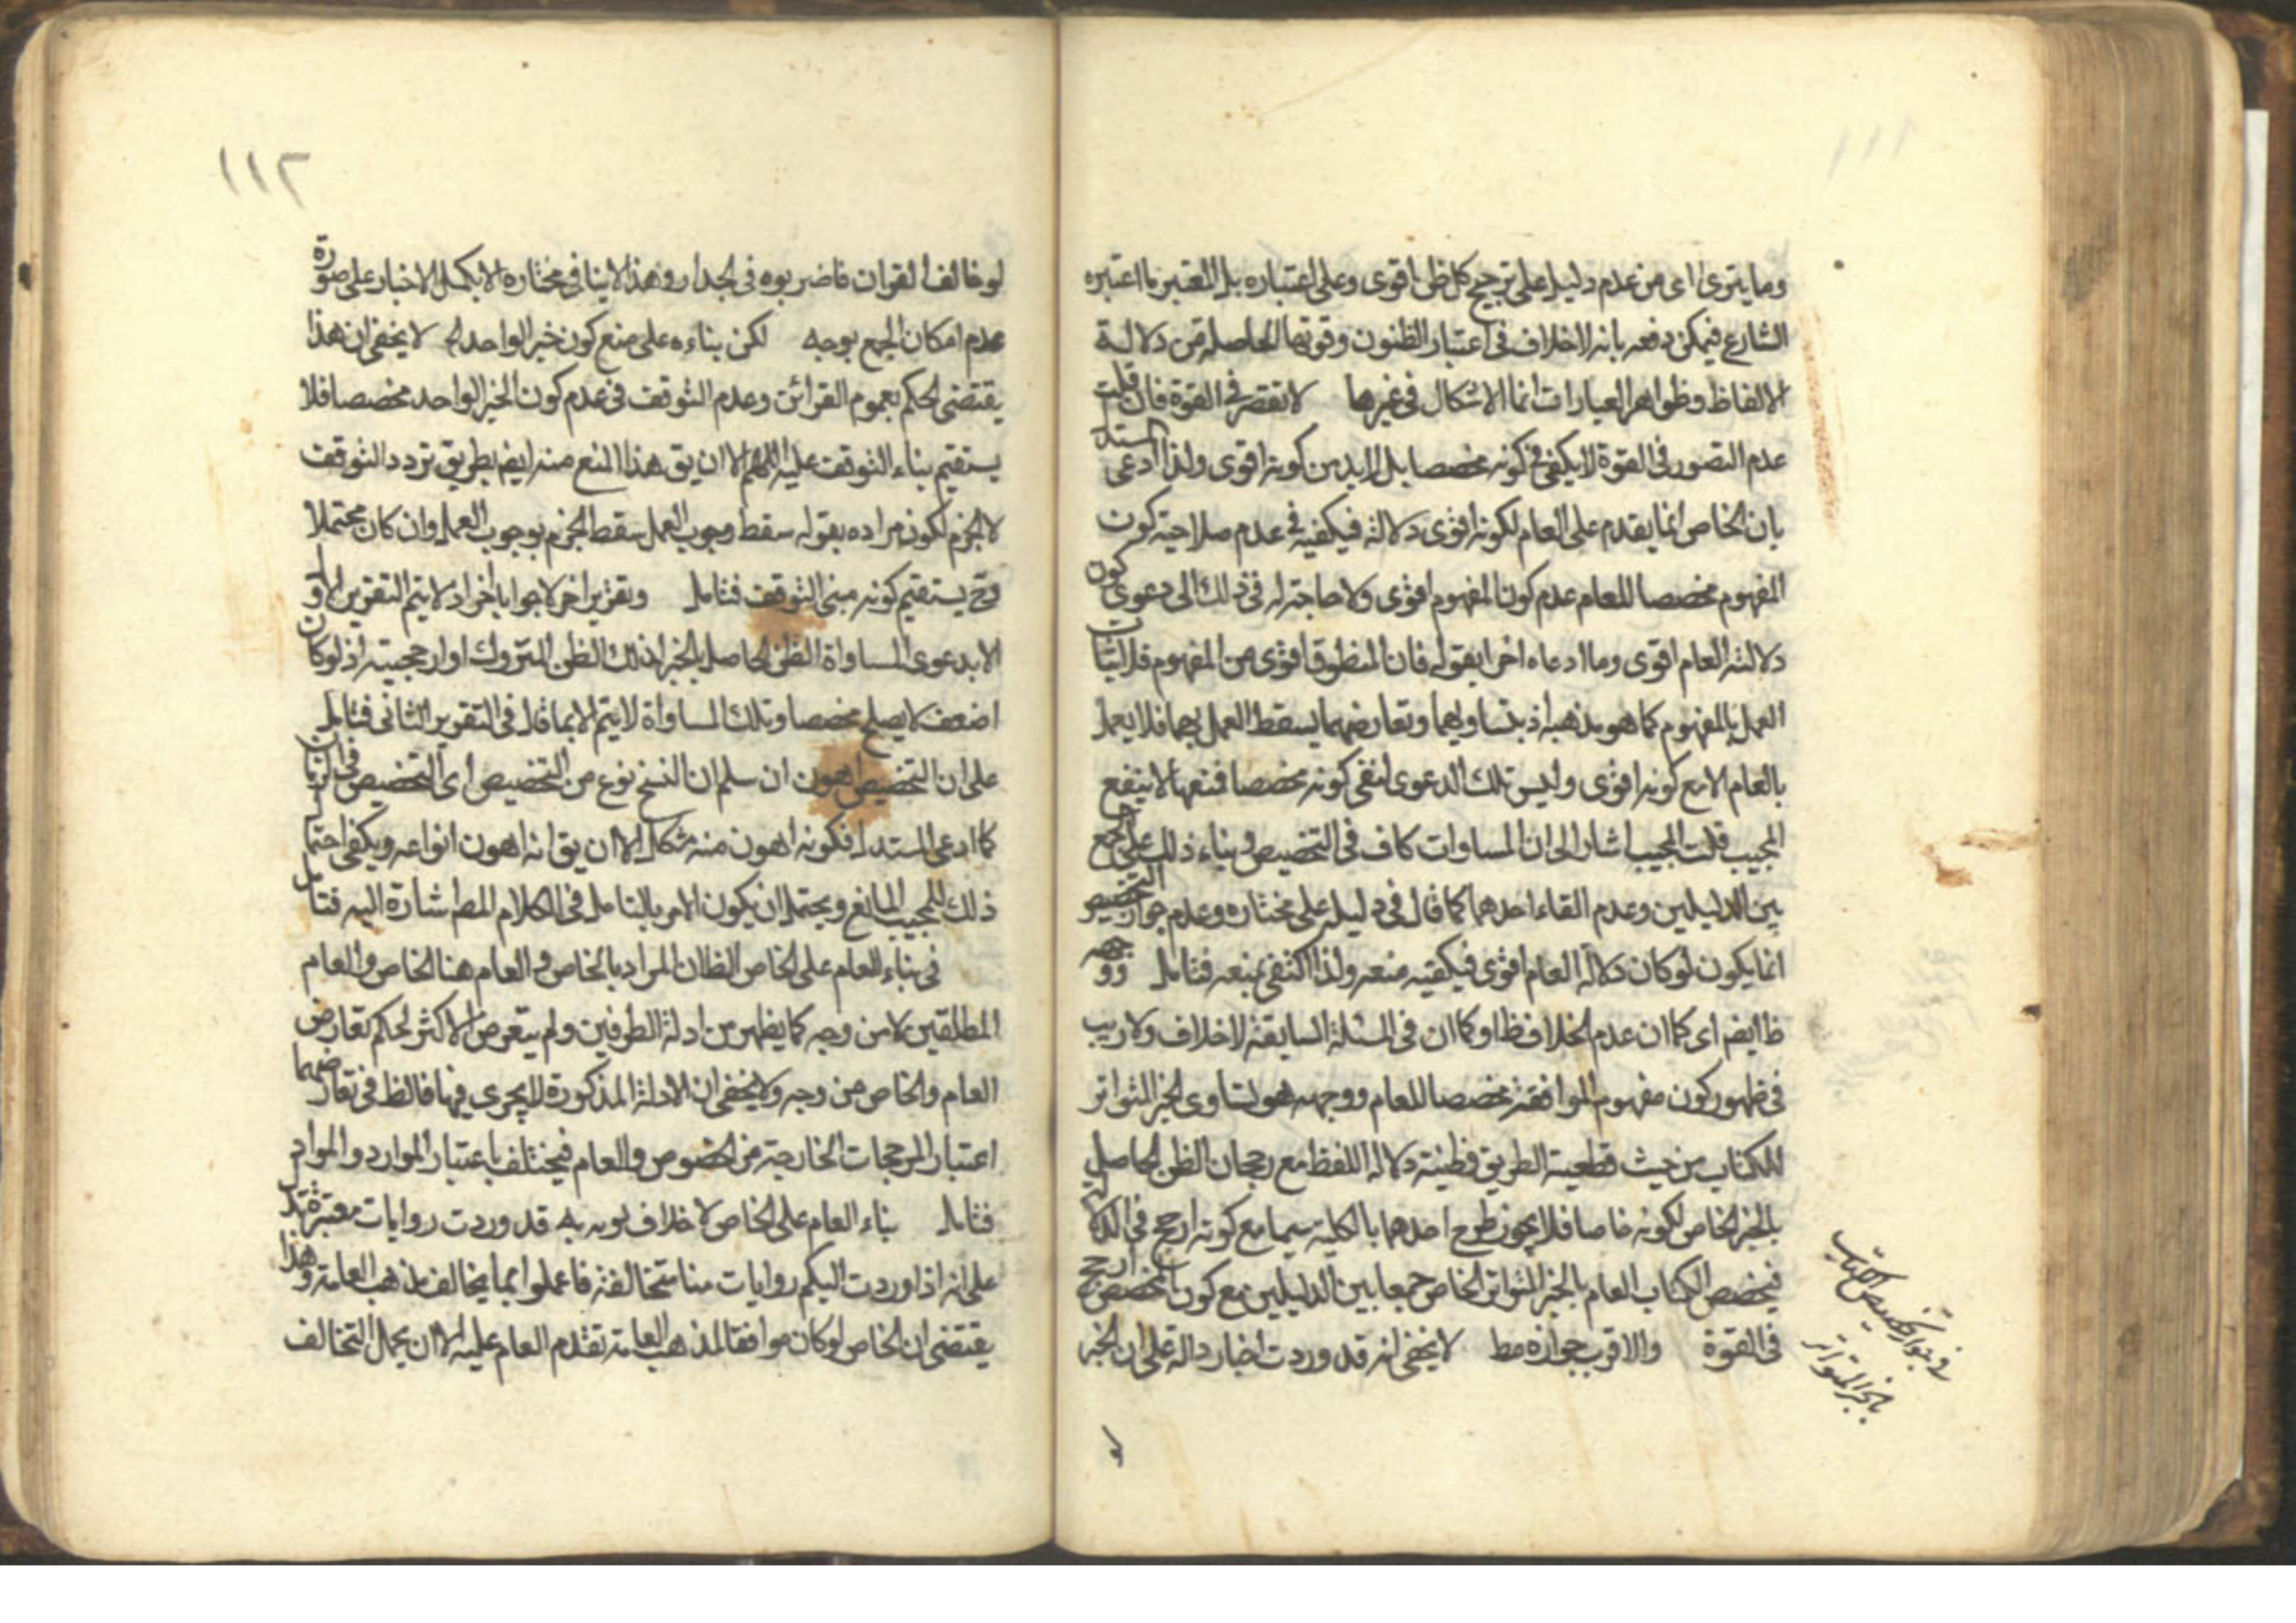 ١١١
وما يترى اى من عدم دليل على ترجيح كل ظن اقوى وعلى اعتباره بل المعتبر ما اعتبره
الشارع فيمكن دفعه بانه لاخلاف فى اعتبار الظنون وقوتها الحاصلة من دلالة
الالفاظ وظواهر العبارات انما الاشكال فى غيرها لا تقصر فى القوة فان قلت
عدم القصور فى القوة لا يكفى فى كونه مخصصا بل لا بد من كونه اقوى ولذا ادعى المستدل
بان الخاص انما يقدم على العام لكونه اقوى دلالة فيكفيه فى عدم صلاحية كون
المفهوم مخصصا للعام عدم كون المفهوم اقوى ولا حاجة له فى ذلك الى دعوى كون
دلالة العام اقوى وما ادعاه اخرا بقوله فان المنطوق اقوى من المفهوم فلاثبات
العمل بالمفهوم كما هو مذهبه اذ بتساويهما وتعارضهما يسقط العمل بهما فلا يعمل
بالعام الا مع كونه اقوى وليس تلك الدعوى لنفى كونه مخصصا فنفعها لا ينفع
المجيب قلت المجيب اشار الى ان المساوات كاف فى التخصيص وبناء ذلك على الجمع
بين الدليلين وعدم القاء احدهما كما قال فى دليله على مختاره وعدم جواز التخصيص
انما يكون لو كان دلالة العام اقوى فيكفيه منعه ولذا اكتفى بمنعه فتامل ووجهه
ظ ايضم اى كما ان عدم الخلاف ظ او كما ان فى المسئلة السابقة لاخلاف ولا ريب
فى ظهور كون مفهوم الموافقة مخصصا للعام ووجهه هو تساوى الخبر المتواتر
للكتاب من حيث قطعية الطريق وظنية دلالة اللفظ مع رجحان الظن الحاصل
بالخبر الخاص لكونه خاصا فلا يجوز طرح احدهما بالكلية سيما مع كونه ارجح فى الدلالة
فيخصص الكتاب العام بالخبر المتواتر الخاص جمعا بين الدليلين مع كون المخصص ارجح
فى القوة والاقرب جوازه مط لا يخفى انه قد وردت اخبار دالة على ان الخبر
فى جواز تخصيص الكتاب
بالخبر المتواتر
لو
١١٢
لو خالف القران فاضربوه فى الجدار وهذا لا ينافى مختاره لا بحمل الاخبار على صورة
عدم امكان الجمع بوجه لكن بناءه على منع كون خبر الواحد الخ لا يخفى ان هذا
يقتضى الحكم بعموم القرائن وعدم التوقف فى عدم كون الخبر الواحد مخصصا فلا
يستقيم بناء التوقف عليه اللهم الا ان يق هذا المنع منه ايضم بطريق تردد التوقف
لا الجزم لكون مراده بقوله سقط وجوب العمل سقط الجزم بوجوب العمل وان كان محتملا
وح يستقيم كونه مبنى التوقف فتامل وتقرير اخر لا جوابا اخر اذ لا يتم التقرير الاول
الا بدعوى المساواة الظن الحاصل بالخبر لذلك الظن المتروك او ارجحيته اذ لو كان
اضعف لا يصلح مخصصا وتلك المساواة لا يتم الا بما قال فى التقرير الثانى فتامل
على ان التخصيص اهون ان سلم ان النسخ نوع من التخصيص اى التخصيص فى الازمان
كما ادعى المستدل فكونه اهون منه مشكل الا ان يق انه اهون انواعه ويكفى احتمال
ذلك للمجيب المانع ويحتمل ان يكون الامر بالتامل فى الكلام المط اشارة اليه فتامل
فى بناء العام على الخاص الظ ان المراد بالخاص والعام هنا الخاص والعام
المطلقين لا من وجه كما يظهر من ادلة الطرفين ولم يتعرض الاكثر لحكم تعارض
العام والخاص من وجه ولا يخفى ان الادلة المذكورة لا يجرى فيها فالظ فى تعارضهما
اعتبار المرجحات الخارجة من الخصوص والعام فيختلف باعتبار الموارد والمواد
فتامل بناء العام على الخاص لا خلاف يوبه به قد وردت روايات معتبرة تدل
على انه اذا وردت اليكم روايات منا متخالفة فاعملوا بما يخالف مذهب العامة وهذا
يقتضى ان الخاص لو كان موافقا لمذهب العامة تقدم العام عليه الا ان يحمل التخالف